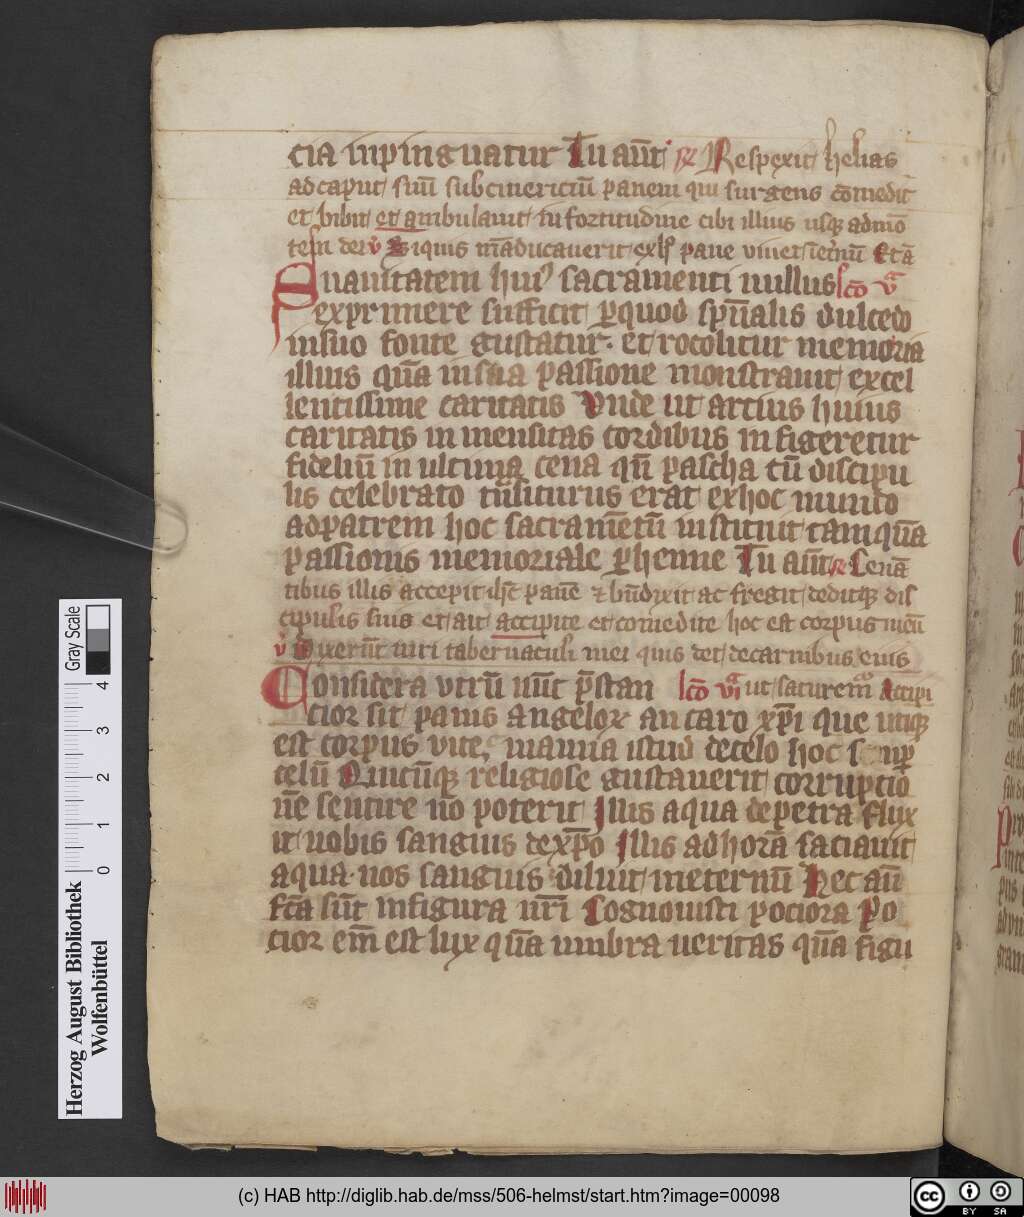 cia inpinguatur Tu aut̄ R̷ Respexit helias
ad caput suū subcinericiū panem qui surgens cōmedit
et bibit et ambulauit in fortitudine cibi illius usq; ad mō
tem dei v̊ Siquis māducauerit ex h̅ pane viuet ī et̄nū Et ā
Suauitatem hui⁹ sacramenti nullus lc̄o vᵃ
exprimere sufficit ꝑ quod sp̄ualis dulcedo
in suo fonte gustatur. et rocolitur memoria
illius quā in sua passione monstrauit excel
lentissime caritatis Vnde ut artius huius
caritatis in mensitas cordibus in figeretur
fidelíū in ultima cena qn̄ pascha cū discipu
lis celebrato trāsiturus erat ex hoc mundo
ad patrem hoc sacramētū instituit tamquā
passionis memoriale ꝑhenne Tu aut̄ R̷ Cenā
tibus illis accepit ih̄c panē ⁊ bn̄dixit ac fregit deditq; dis
cipulis suis et ait accipite et comedite hoc est corpus meū
v̊ Dixerūt uiri tabernaculi mei quis det de carnibus eius
Considera vtrū nūc p̄stan lc̄o viᵃ ut saturem⁰ Accipi
cior sit panis angeloꝝ an caro xp̄i que utiq;
est corpus vite, manna istud de celo hoc sup
celū Quicūq; religiose gustauerit corrupcio
nē sentire nō poterit Illis aqua de petra flux
it uobis sanguis de xp̄o Illis ad horā saciauit
aqua nos sanguis diluit in eternū Hec aū
fcā sūt in figura nr̄i Cognouisti pociora Po
cior em̄ est lux quā umbra ueritas quā figu
Gray Scale
0 1 2 3 4
Herzog August Bibliothek
Wolfenbüttel
(c) HAB http://diglib.hab.de/mss/506-helmst/start.htm?image=00098
cc BY SA